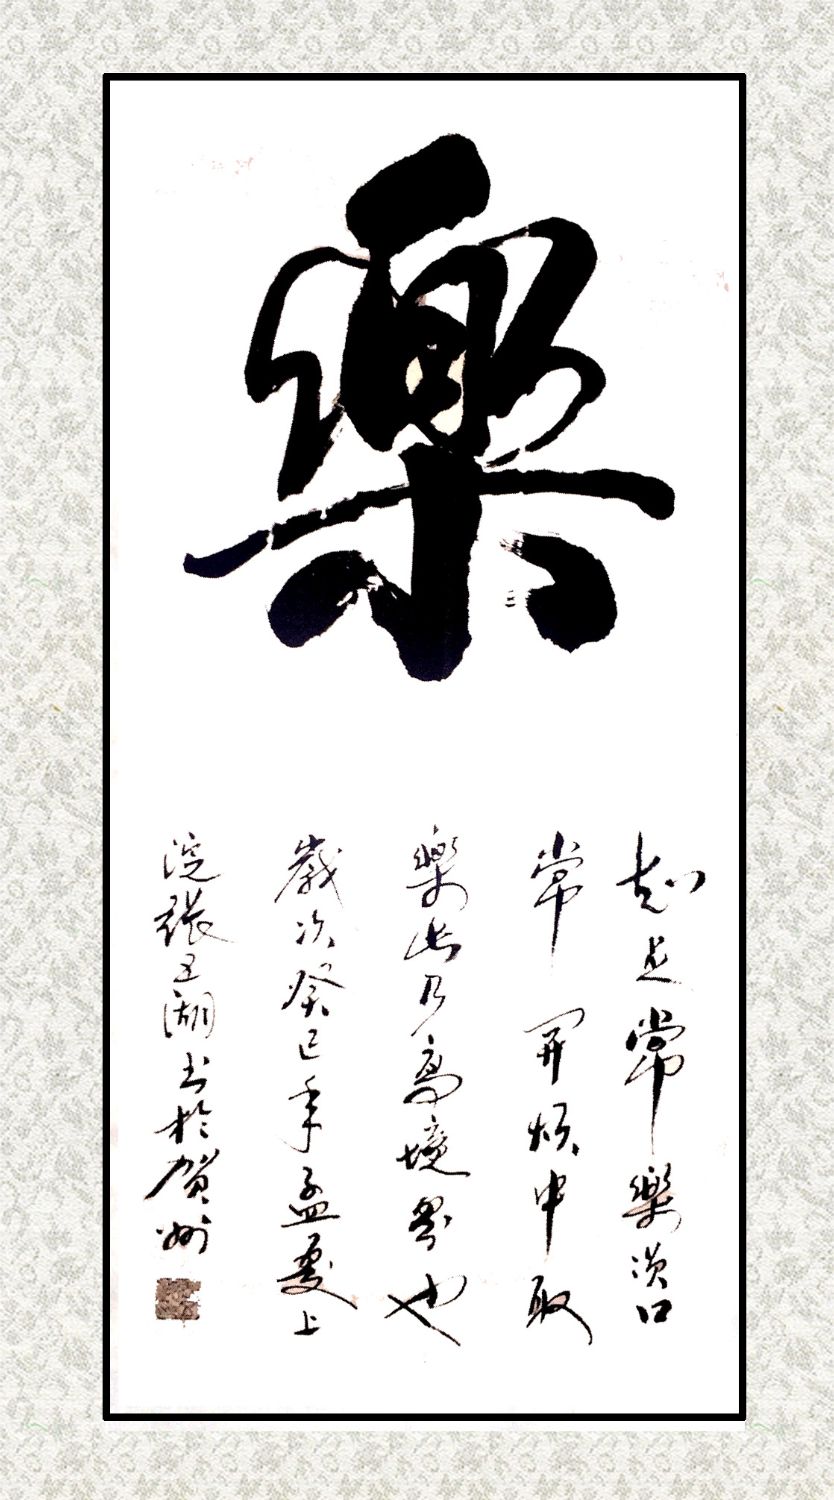 樂
知足常樂笑口
常開煩中取
樂此乃高境界也
歲次癸巳年孟夏上
浣張五湖書於賀州